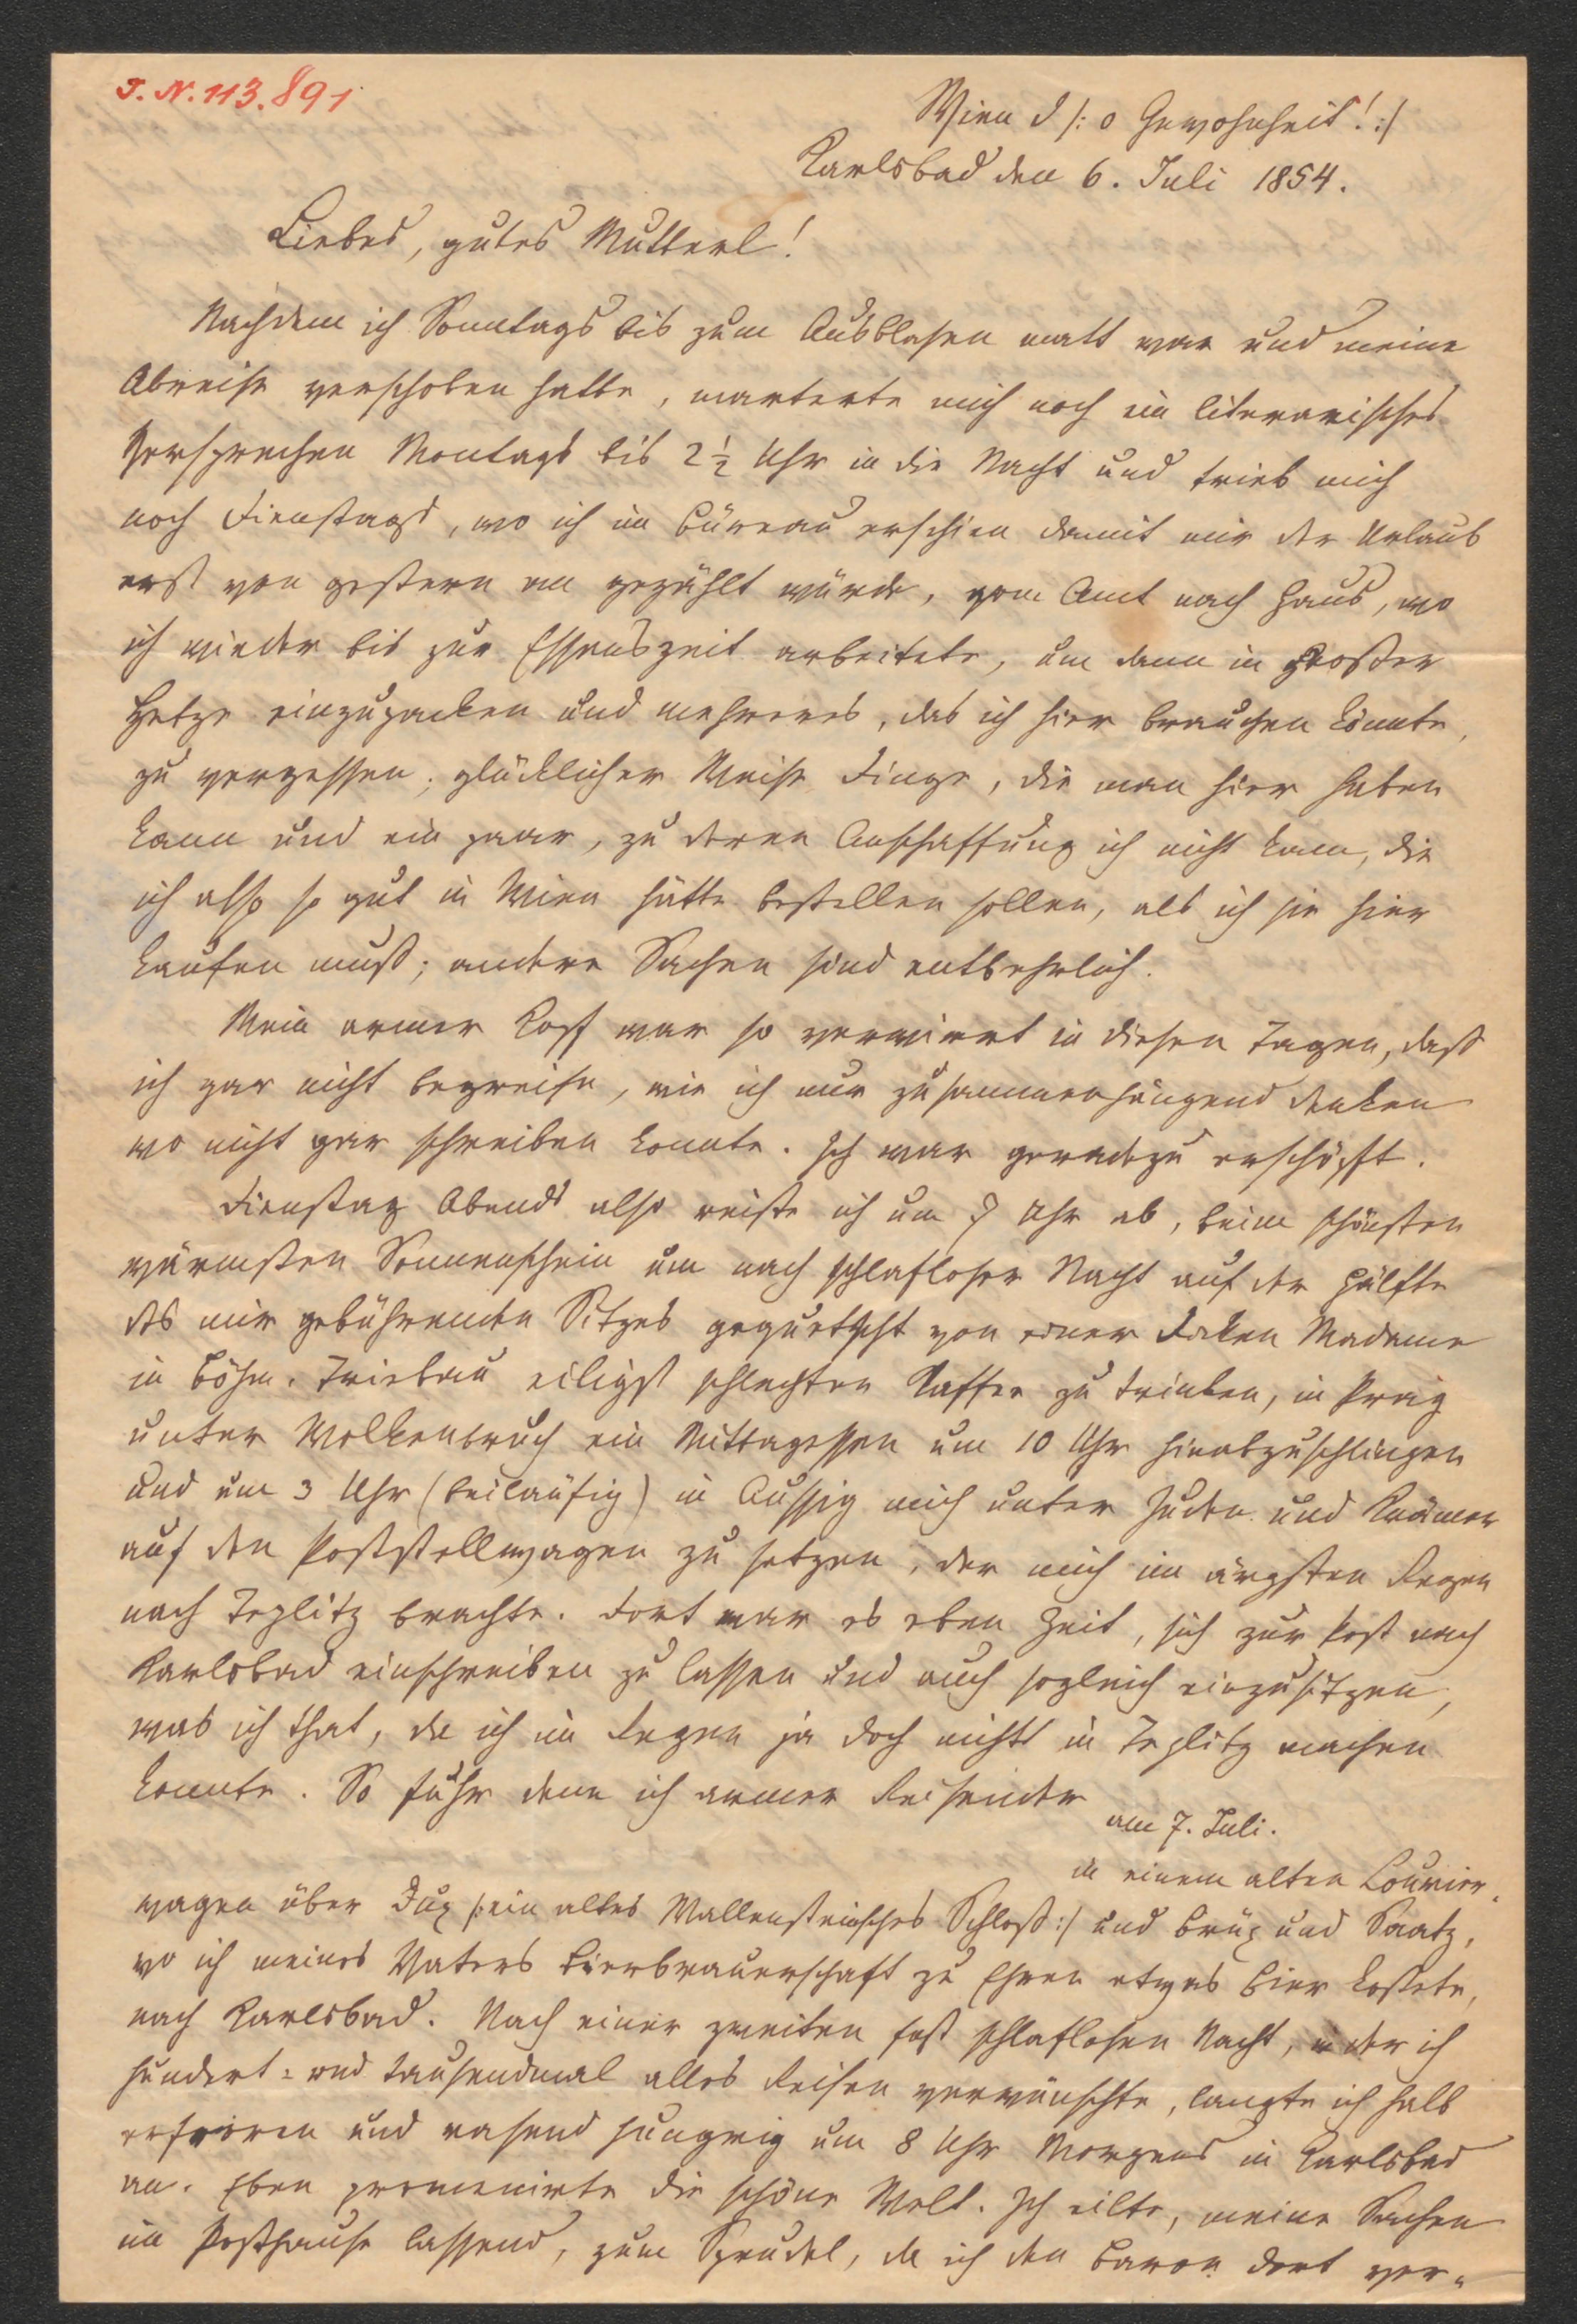 J. N. 113.891
Wien d /: o Gewohnheit! :/
Karlsbad den 6. Juli 1854.
Liebes, gutes Mutterl!
Nachdem ich Sonntags bis zum Ausblasen matt war und meine
Abreise verschoben hatte, marterte mich noch ein literarisches
Versprechen Montags bis 2½ Uhr in die Nacht und trieb mich
noch Dienstags, wo ich im Büreau erschien damit mir der Urlaub
erst von gestern an gezählt würde, vom Amt nach Haus, wo
ich wieder bis zur Essenszeit arbeitete, um dann in großer
Hetze einzupacken und mehreres, das ich hier brauchen könnte,
zu vergessen; glücklicher Weise Dinge, die man hier haben
kann und ein paar, zu deren Anschaffung ich nicht kam, die
ich also so gut in Wien hätte bestellen sollen, als ich sie hier
kaufen muß; andere Sachen sind entbehrlich.
Mein armer Kopf war so verwirrt in diesen Tagen, daß
ich gar nicht begreife, wie ich nur zusammenhängend denken
wo nicht gar schreiben konnte. Ich war geradezu erschöpft.
Dienstag Abends also reiste ich um 7 Uhr ab, beim schönsten
wärmsten Sonnenschein um nach schlafloser Nacht auf der Hälfte
des mir gebührenden Sitzes gequetscht von einer dicken Madame
in Böhm. Triebau eiligst schlechten Kaffee zu trinken, in Prag
unter Wolkenbruch ein Mittagessen um 10 Uhr hinabzuschlingen
und um 3 Uhr (beiläufig) in Aussig mich unter Juden und Krämer
auf den Poststellwagen zu setzen, der mich im ärgsten Regen
nach Teplitz brachte. Dort war es eben Zeit, sich zur Post nach
Karlsbad einschreiben zu lassen und auch sogleich einzusitzen,
was ich that, da ich im Regen ja doch nichts in Teplitz machen
konnte. So fuhr denn ich armer Reisender
am 7. Juli.
in einem alten Courier-
wagen über Dux /: ein altes Wallensteinsches Schloß :/ und Brüx und Saatz,
wo ich meines Vaters Bierbrauerschaft zu Ehren etwas Bier kostete,
nach Karlsbad. Nach einer zweiten fast schlaflosen Nacht, in der ich
hundert- und tausendmal alles Reisen verwünschte, langte ich halb
erfroren und rasend hungrig um 8 Uhr Morgens in Karlsbad
an. Eben promenirte die schöne Welt. Ich eilte, meine Sachen
im Posthause lassend, zum Sprudel, da ich den Baron dort ver-